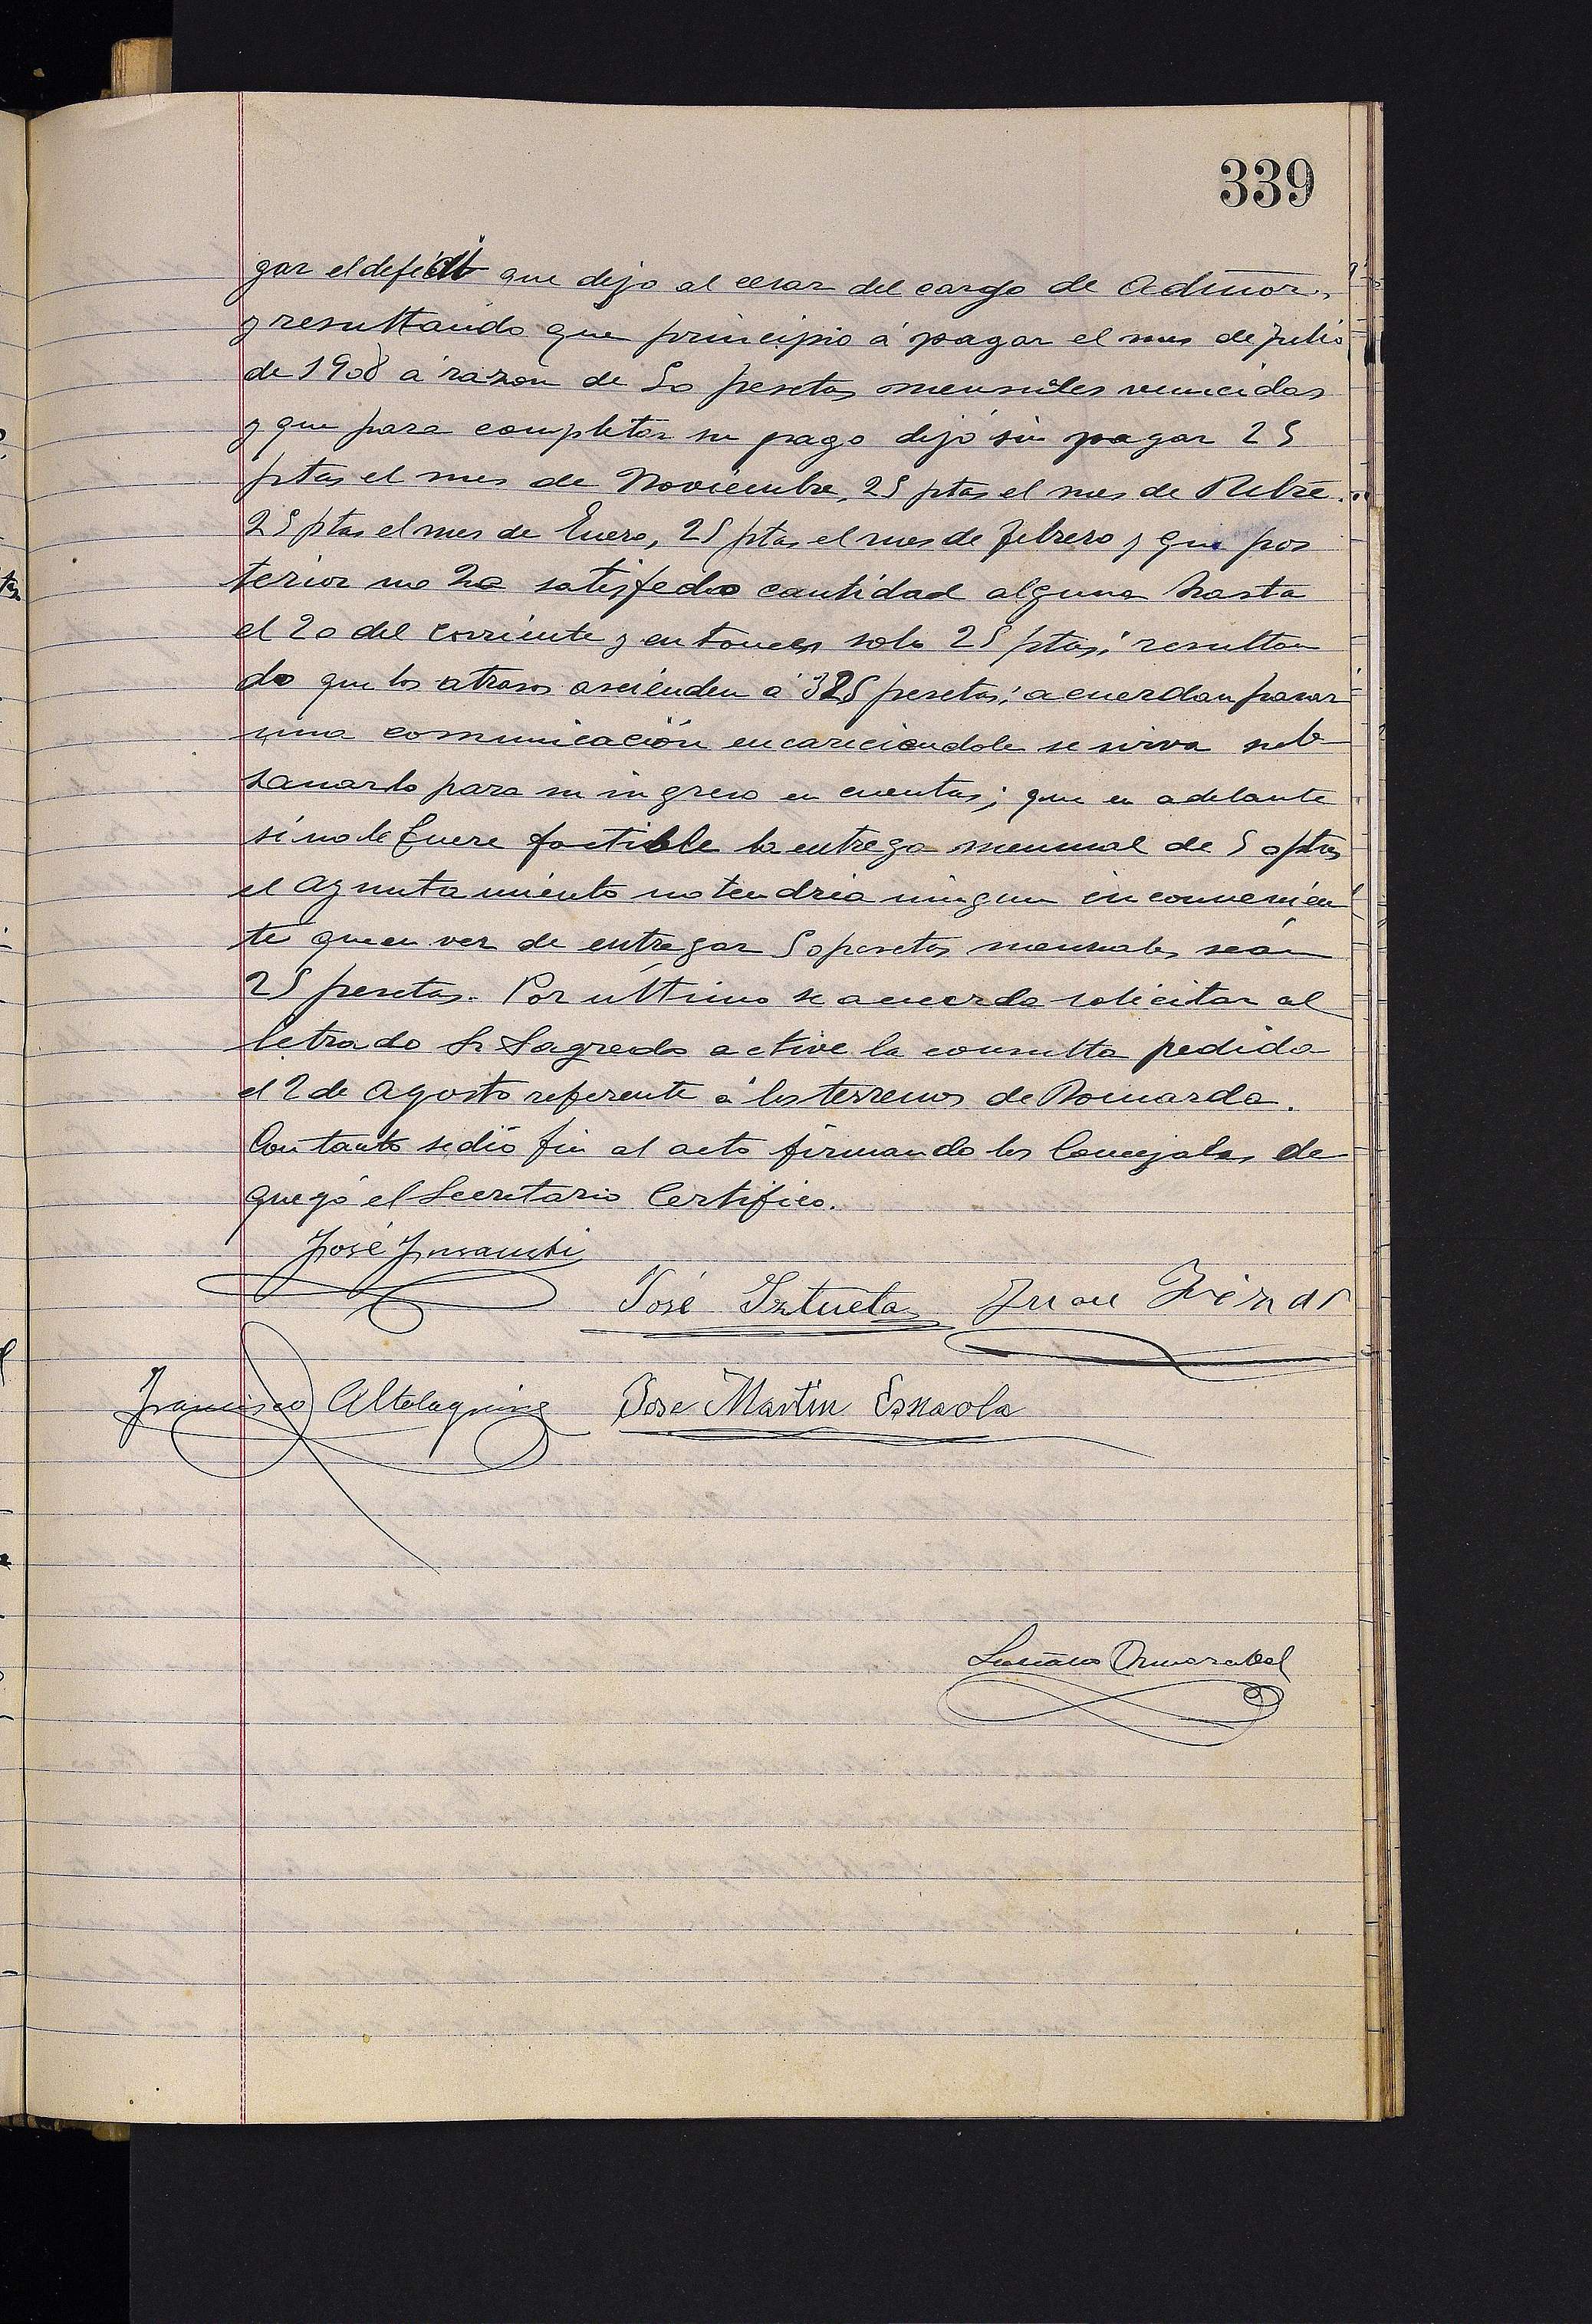 339
gar el deficit que dejo al cesar del cargo de Admor.,
y resultando que principio á pagar el mes de Julio
de 1908 á razón de 50 pesetas mensuales vencidas
y que para completar su pago dejó sin pagar 25
ptas el mes de Noviembre, 25 ptas el mes de Dibre.
25 ptas el mes de Enero, 25 ptas el mes de Febrero y que pos
terior no ha satisfecho cantidad alguna hasta
el 20 del corriente y entonces solo 25 ptas; resultan
do que los atrasos ascienden á 325 pesetas; acuerdan pasar
una comunicación encareciendole se sirva sub
sanarlo para su ingreso en cuentas; que en adelante
si no le fuere factible la entrega mensual de 50 ptas
el Ayuntamiento no tendria ningun inconvenien
te que en vez de entregar 50 pesetas mensuales sean
25 pesetas. Por último se acuerda solicitar al
letrado Sr Sagredo active la consulta pedida
el 2 de Agosto referente á los terrenos de
Con tanto se dió fin al acto firmando los Concejales de
que yo el Secretario Certifico.
José Insausti
José Iztueta Juan
Francisco Altolaguirre José Martin Esnaola
Luciano Ormazabal